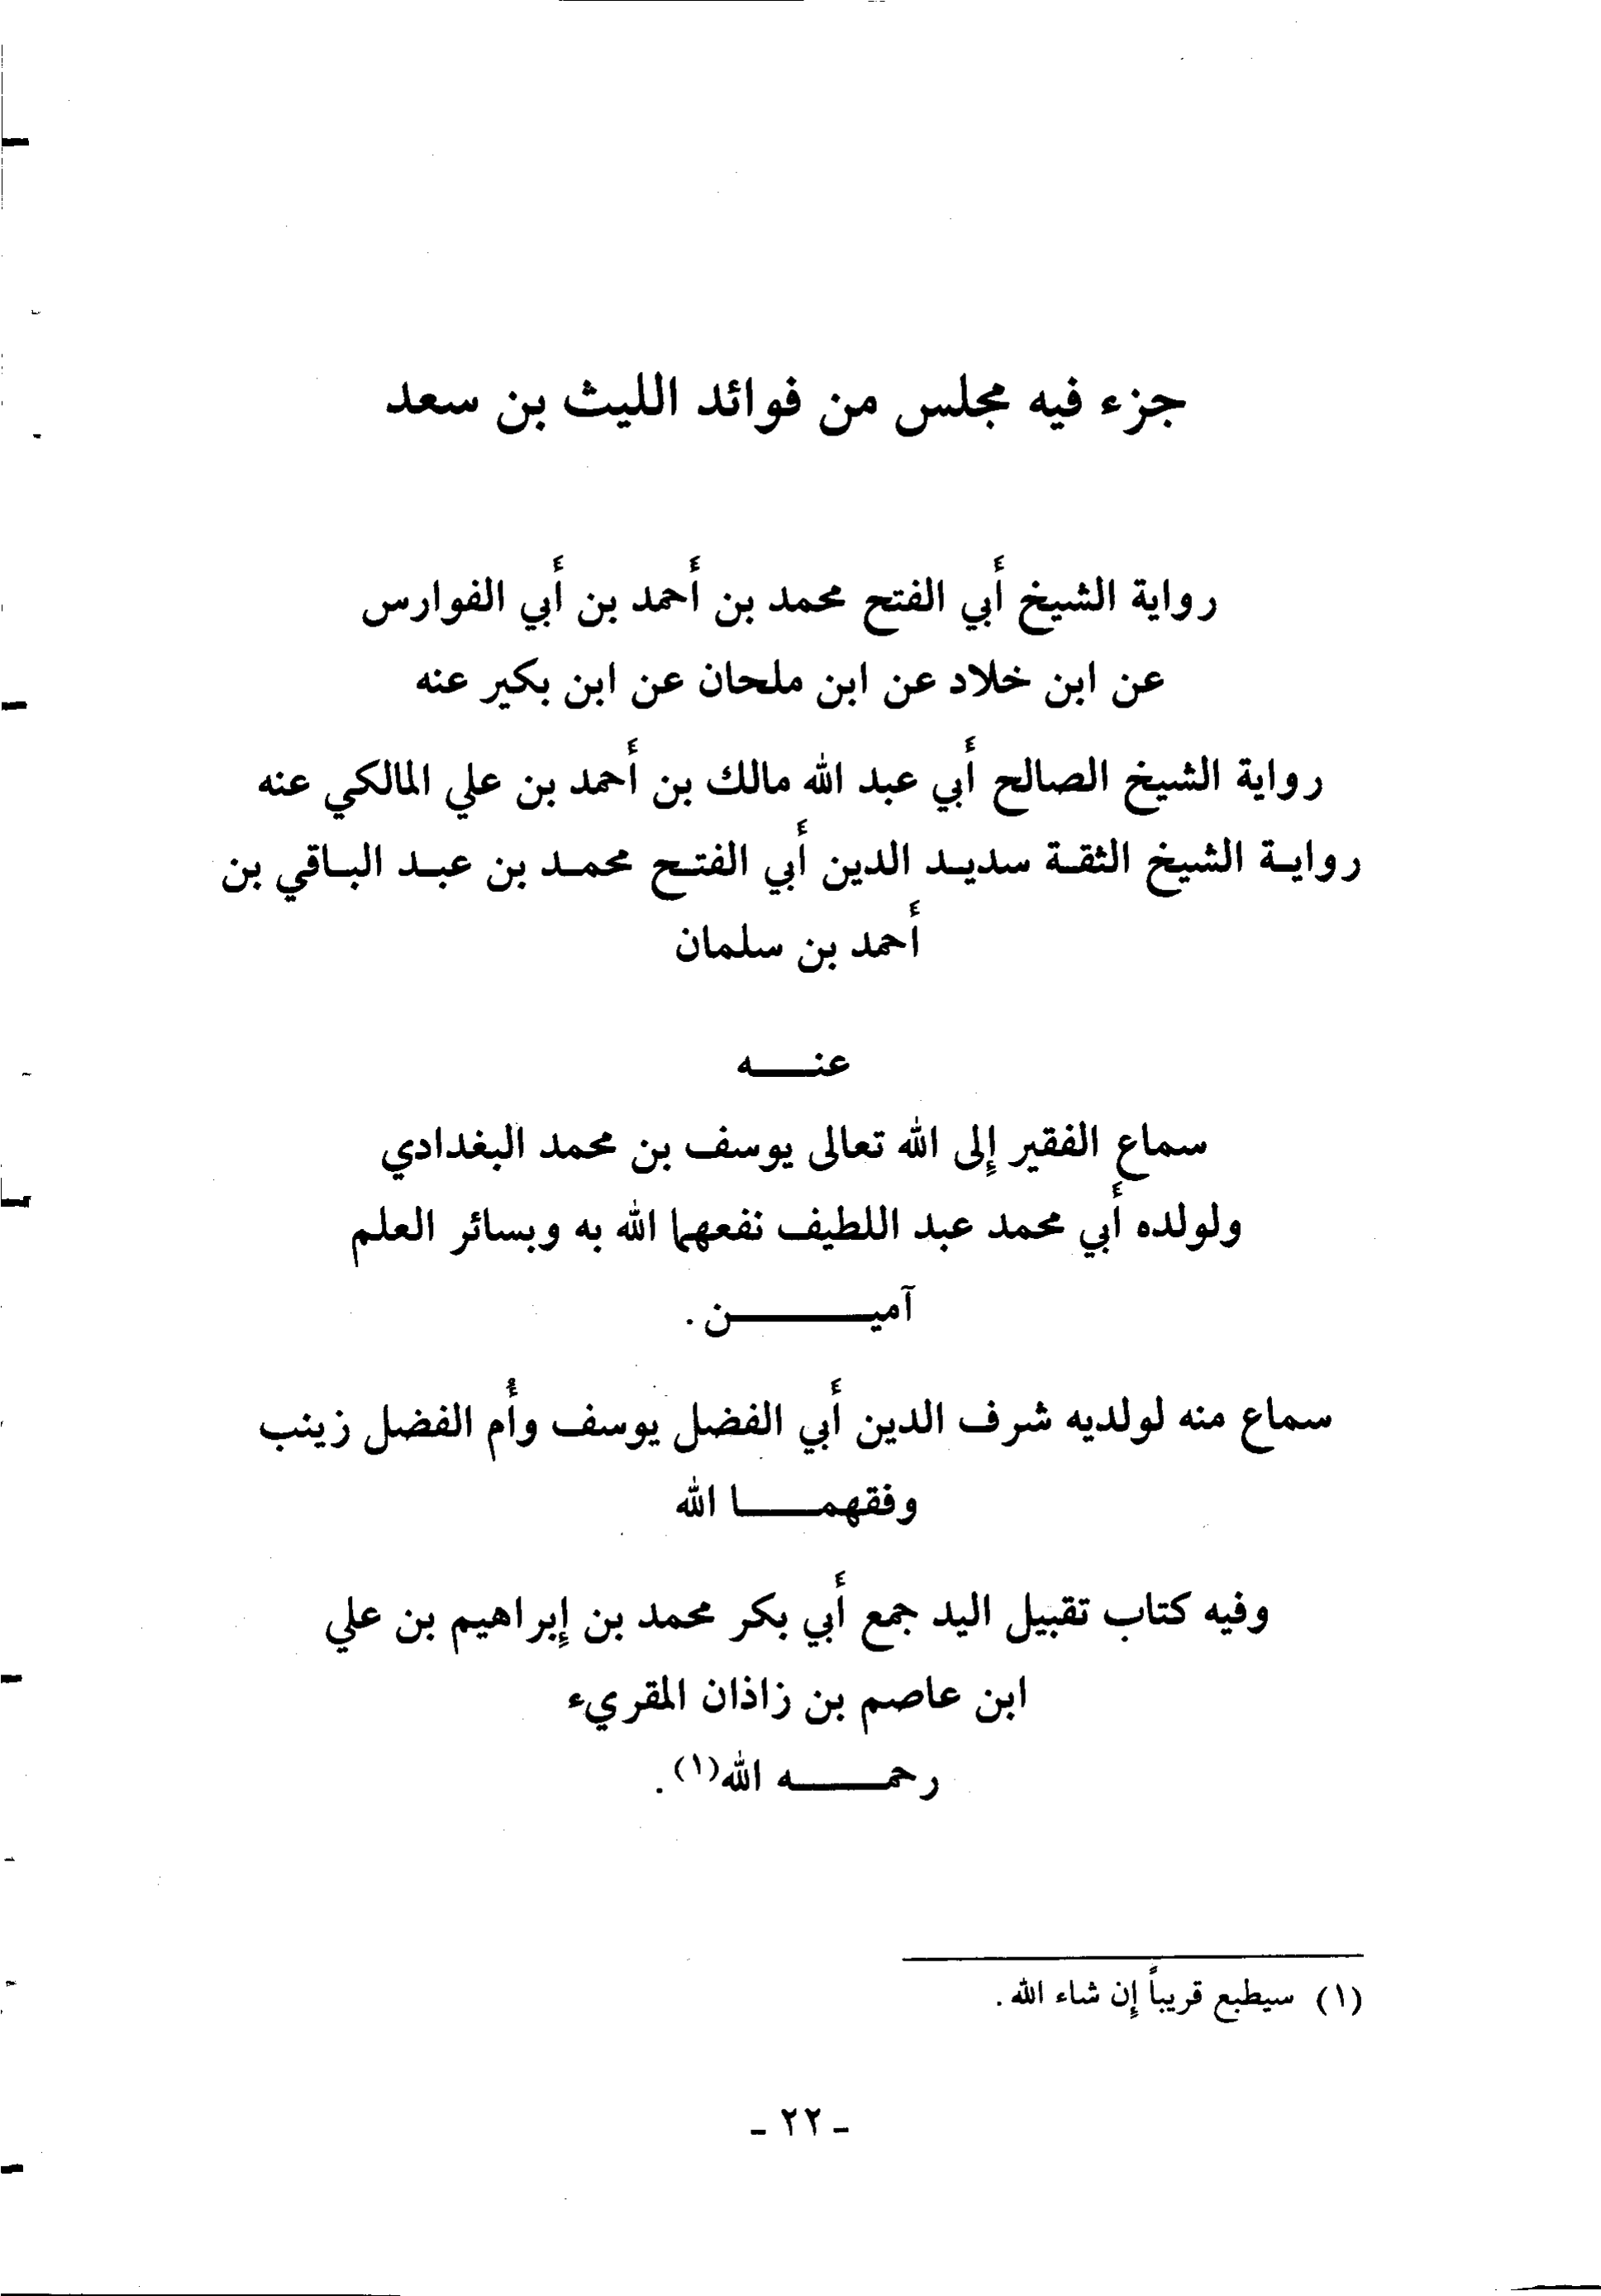 جزء فيه مجلس من فوائد الليث بن سعد
رواية الشيخ أبي الفتح محمد بن أحمد بن أبي الفوارس
عن ابن خلاد عن ابن ملحان عن ابن بكير عنه
رواية الشيخ الصالح أبي عبد الله مالك بن أحمد بن علي المالكي عنه
روايـة الشيخ الثقـة سديـد الدين أبي الفتـح محمـد بن عبـد البـاقي بن
أحمد بن سلمان
عنـــه
سماع الفقير إلى الله تعالى يوسف بن محمد البغدادي
ولولده أبي محمد عبد اللطيف نفعهما الله به وبسائر العلم
آميـــــن .
سماع منه لولديه شرف الدين أبي الفضل يوسف وأُم الفضل زينب
وفقهمـــا الله
وفيه كتاب تقبيل اليد جمع أبي بكر محمد بن إبراهيم بن علي
ابن عاصم بن زاذان المقريء
رحمـــه الله(١) .
(١) سيطبع قريباً إن شاء الله .
- ٢٢ -